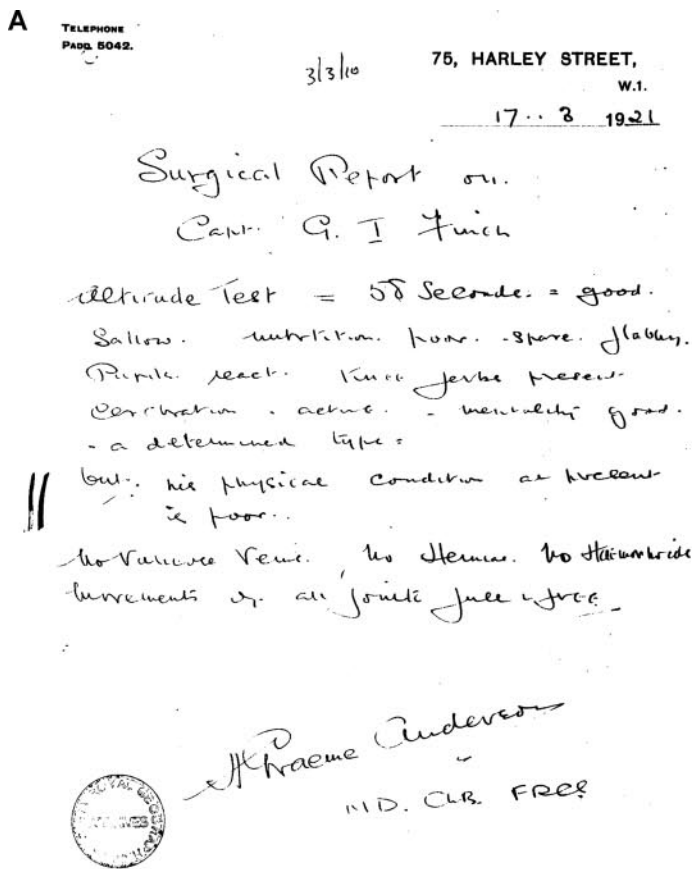 A
TELEPHONE
PADD. 5042.
3/3/10
75, HARLEY STREET,
W.1.
17 .. 3 1921
Surgical Report on.
Capt. G. I Finch
Altitude Test = 58 Seconds. = good.
Sallow. nutrition. poor. spare. flabby.
Pupils. react. Knee jerks present
Cerebration . active. - mentality good.
- a determined type =
but: his physical condition at present
is poor..
No Varicose Veins. No Hernias. No Haemorrhoids
Movements of all joints full & free
H Graeme Anderson
MD. Ch.B. FRCS
ROYAL GEOGRAPHICAL
ARCHIVES